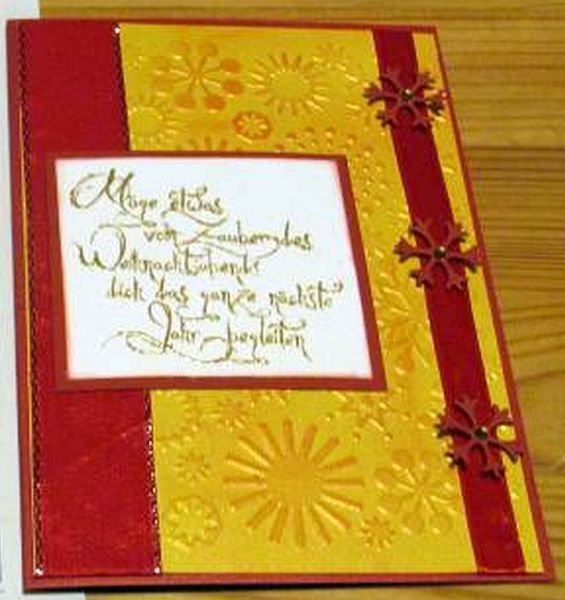 Möge etwas
vom Zauber des
Weihnachtsabends
dich das ganze nächste
Jahr begleiten